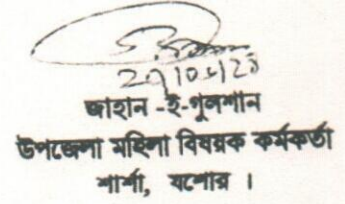 জাহান -ই-গুলশান
উপজেলা মহিলা বিষয়ক কর্মকর্তা
শার্শা, যশোর ।